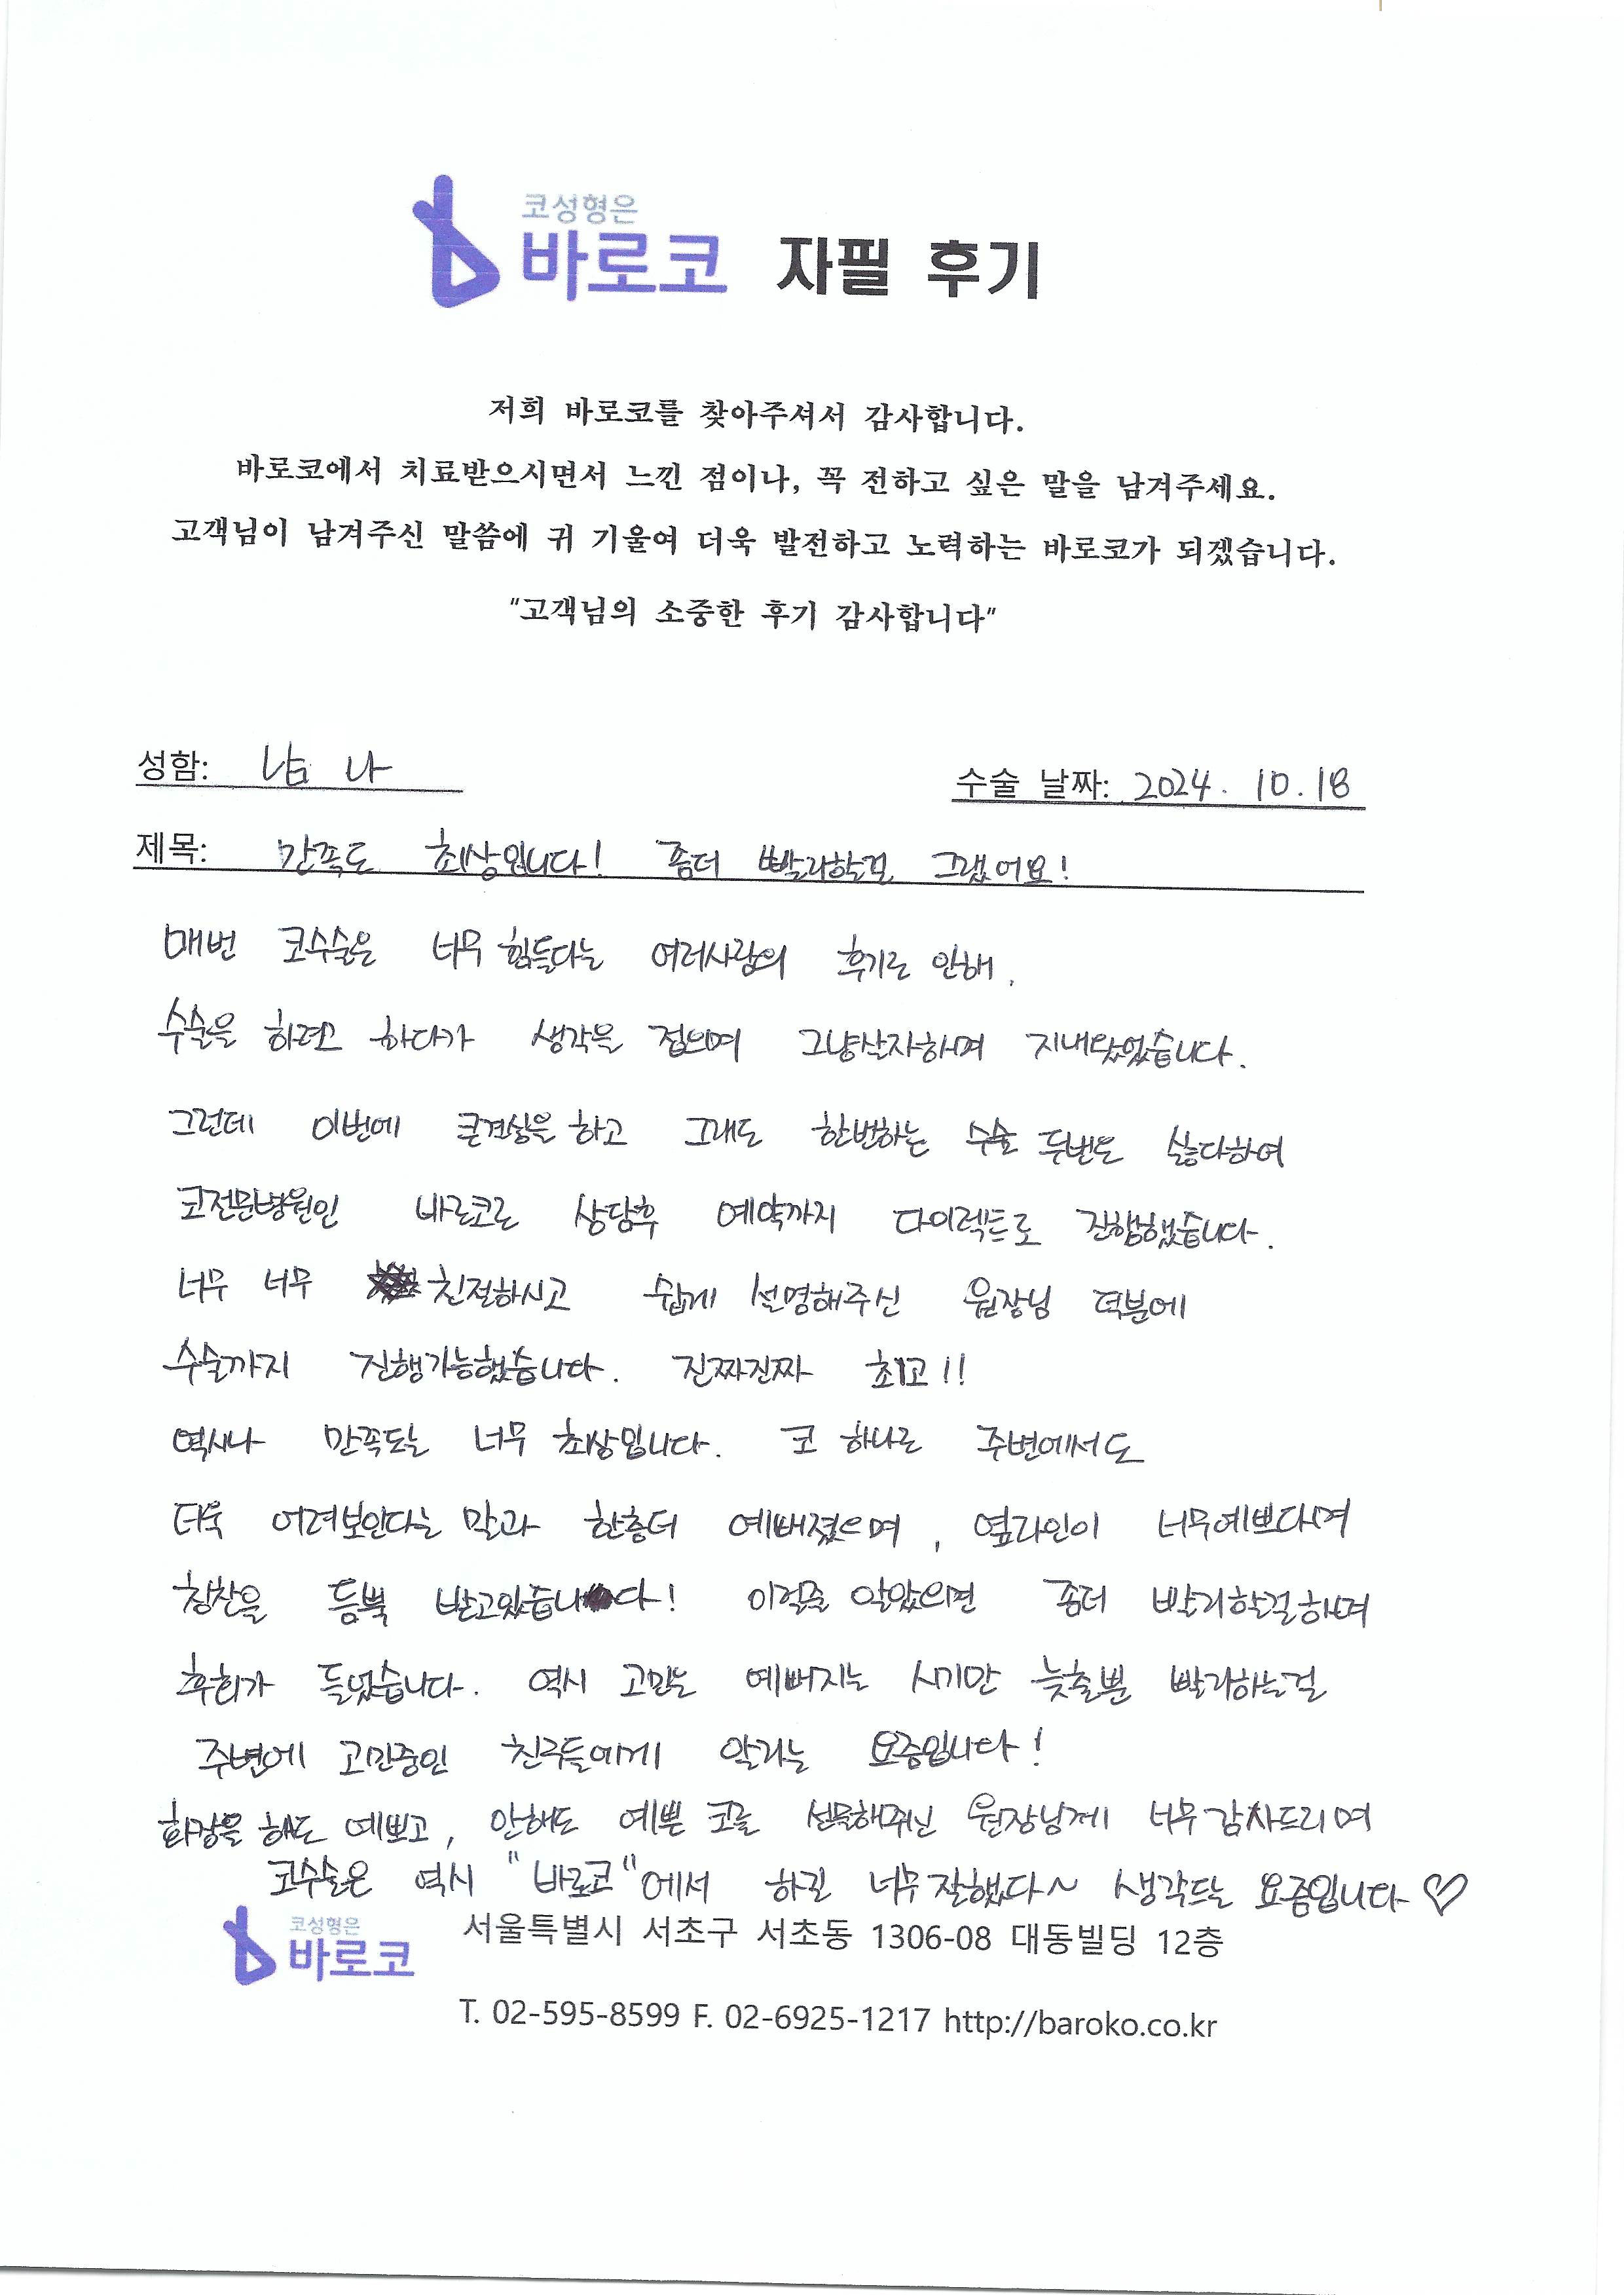 코성형은
바로코 자필 후기
저희 바로코를 찾아주셔서 감사합니다.
바로코에서 치료받으시면서 느낀 점이나, 꼭 전하고 싶은 말을 남겨주세요.
고객님이 남겨주신 말씀에 귀 기울여 더욱 발전하고 노력하는 바로코가 되겠습니다.
"고객님의 소중한 후기 감사합니다"
성함: 남 나 수술 날짜: 2024. 10. 18
제목: 만족도 최상입니다! 좀더 빨리할걸 그랬어요!
매번 코수술은 너무 힘들다는 여러사람의 후기로 인해,
수술을 하려고 하다가 생각을 접으며 그냥살자하며 지내왔었습니다.
그런데 이번에 큰결심을 하고 그래도 한번하는 수술 두번도 싫다하여
코전문병원인 바로코로 상담후 예약까지 다이렉트로 진행했습니다.
너무 너무 친절하시고 쉽게 설명해주신 원장님 덕분에
수술까지 진행가능했습니다. 진짜진짜 최고!!
역시나 만족도는 너무 최상입니다. 코 하나로 주변에서도
더욱 어려보인다는 말과 한층더 예뻐졌으며, 옆라인이 너무예쁘다며
칭찬을 듬뿍 받고있습니다! 이럴줄 알았으면 좀더 빨리할걸하며
후회가 들었습니다. 역시 고민은 예뻐지는 시기만 늦출뿐 빨리하는걸
주변에 고민중인 친구들에게 알리는 요즘입니다!
화장을 해도 예쁘고, 안해도 예쁜 코를 선물해주신 원장님께 너무감사드리며
코수술은 역시 "바로코"에서 하길 너무잘했다~ 생각드는 요즘입니다♡
코성형은
바로코 서울특별시 서초구 서초동 1306-08 대동빌딩 12층
T. 02-595-8599 F. 02-6925-1217 http://baroko.co.kr